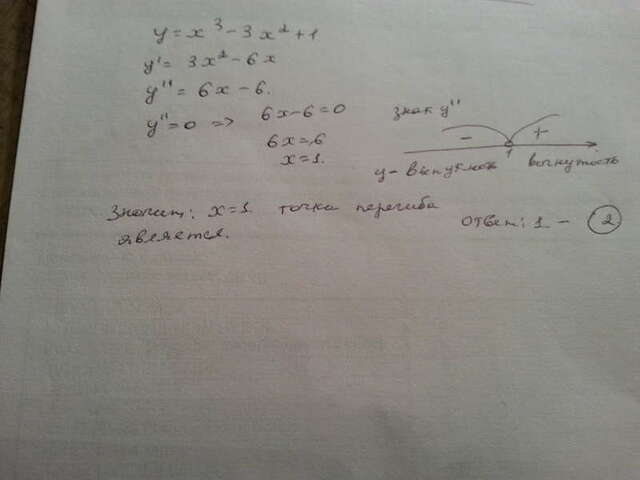 y = x³ - 3x² + 1
y' = 3x² - 6x
y'' = 6x - 6.
y'' = 0 => 6x - 6 = 0
6x = 6
x = 1.
знак y''
- +
1
y - выпуклость вогнутость
Значит: x = 1 точка перегиба
является.
ответ: 1 - 2